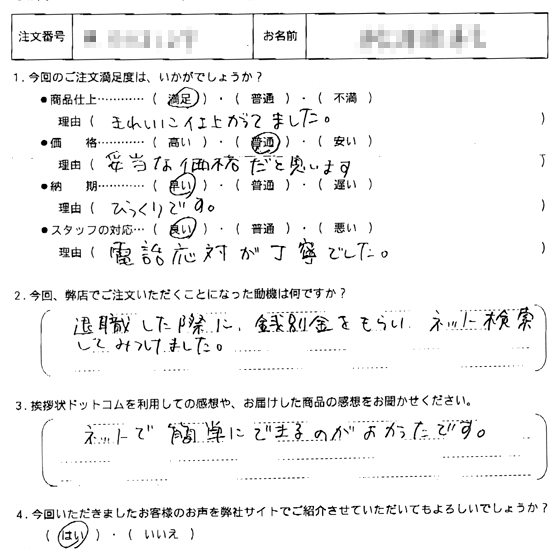 注文番号
お名前
1.今回のご注文満足度は、いかがでしょうか？
●商品仕上…………（ 満足 ）・（ 普通 ）・（ 不満 ）
理由（ きれいに仕上がってました。 ）
●価　　格…………（ 高い ）・（ 普通 ）・（ 安い ）
理由（ 妥当な価格だと思います ）
●納　　期…………（ 早い ）・（ 普通 ）・（ 遅い ）
理由（ びっくりです。 ）
●スタッフの対応…（ 良い ）・（ 普通 ）・（ 悪い ）
理由（ 電話応対が丁寧でした。 ）
2.今回、弊店でご注文いただくことになった動機は何ですか？
退職した際に、銭別金をもらい ネット検索
してみつけました。
3.挨拶状ドットコムを利用しての感想や、お届けした商品の感想をお聞かせください。
ネットで簡単にできるのがよかったです。
4.今回いただきましたお客様のお声を弊社サイトでご紹介させていただいてもよろしいでしょうか？
（ はい ）・（ いいえ ）